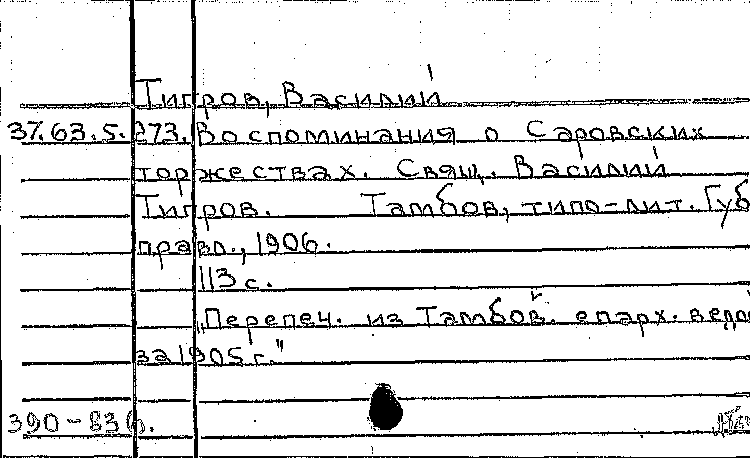 Тигров, Василий
37.63.5.273. Воспоминания о Саровских
торжествах. Свящ. Василий
Тигров. Тамбов, типо-лит. Губ
правл., 1906.
113 с.
„Перепеч. из Тамбов. епарх. ведо
за 1905 г."
390-836.